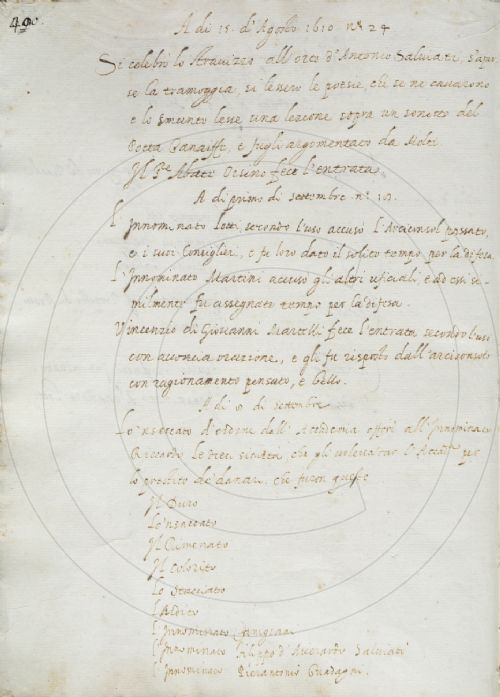 40
A dì 15. d'Agosto 1610 n.º 24
Si celebrò lo Stravizzo all'orto d'Antonio Salviati, s'aper
se la tramoggia, si lessero le poesie, che se ne cavarono
e lo smunto lesse una lezione sopra un sonetto del
e fugli argomentato da Molti
Il P.e Abate Orsino fece l'entrata
A dì primo di settembre n.º
L'Innominato secondo l'uso accusò l'Arciconsol passato,
e i suoi Consiglieri, e fu loro dato il solito tempo per la difesa.
L'Innominato Martini accusò gli altri uficiali, e ad essi si-
milmente fu assegnato tempo per la difesa.
Vincenzio di Giovanni Martelli fece l'entrata secondo l'uso
con acconcia orazione, e gli fu risposto dall'arciconsolo
con ragionamento pensato, e bello.
A dì 8 di settembre
Lo 'nsaccato d'ordine dell'Accademia offerì all'Innominato
Riccardo le che gli voleva far l'Accad.ª per
lo prestito de' danari, che furon questi
Il Duro
Lo 'nsaccato
Il Rimenato
Il Colorito
Lo Stacciato
L'Ardito
L'Innominato
L'Innominato Filippo d'Averardo Salviati
L'Innominato Pierantonio Guadagni.